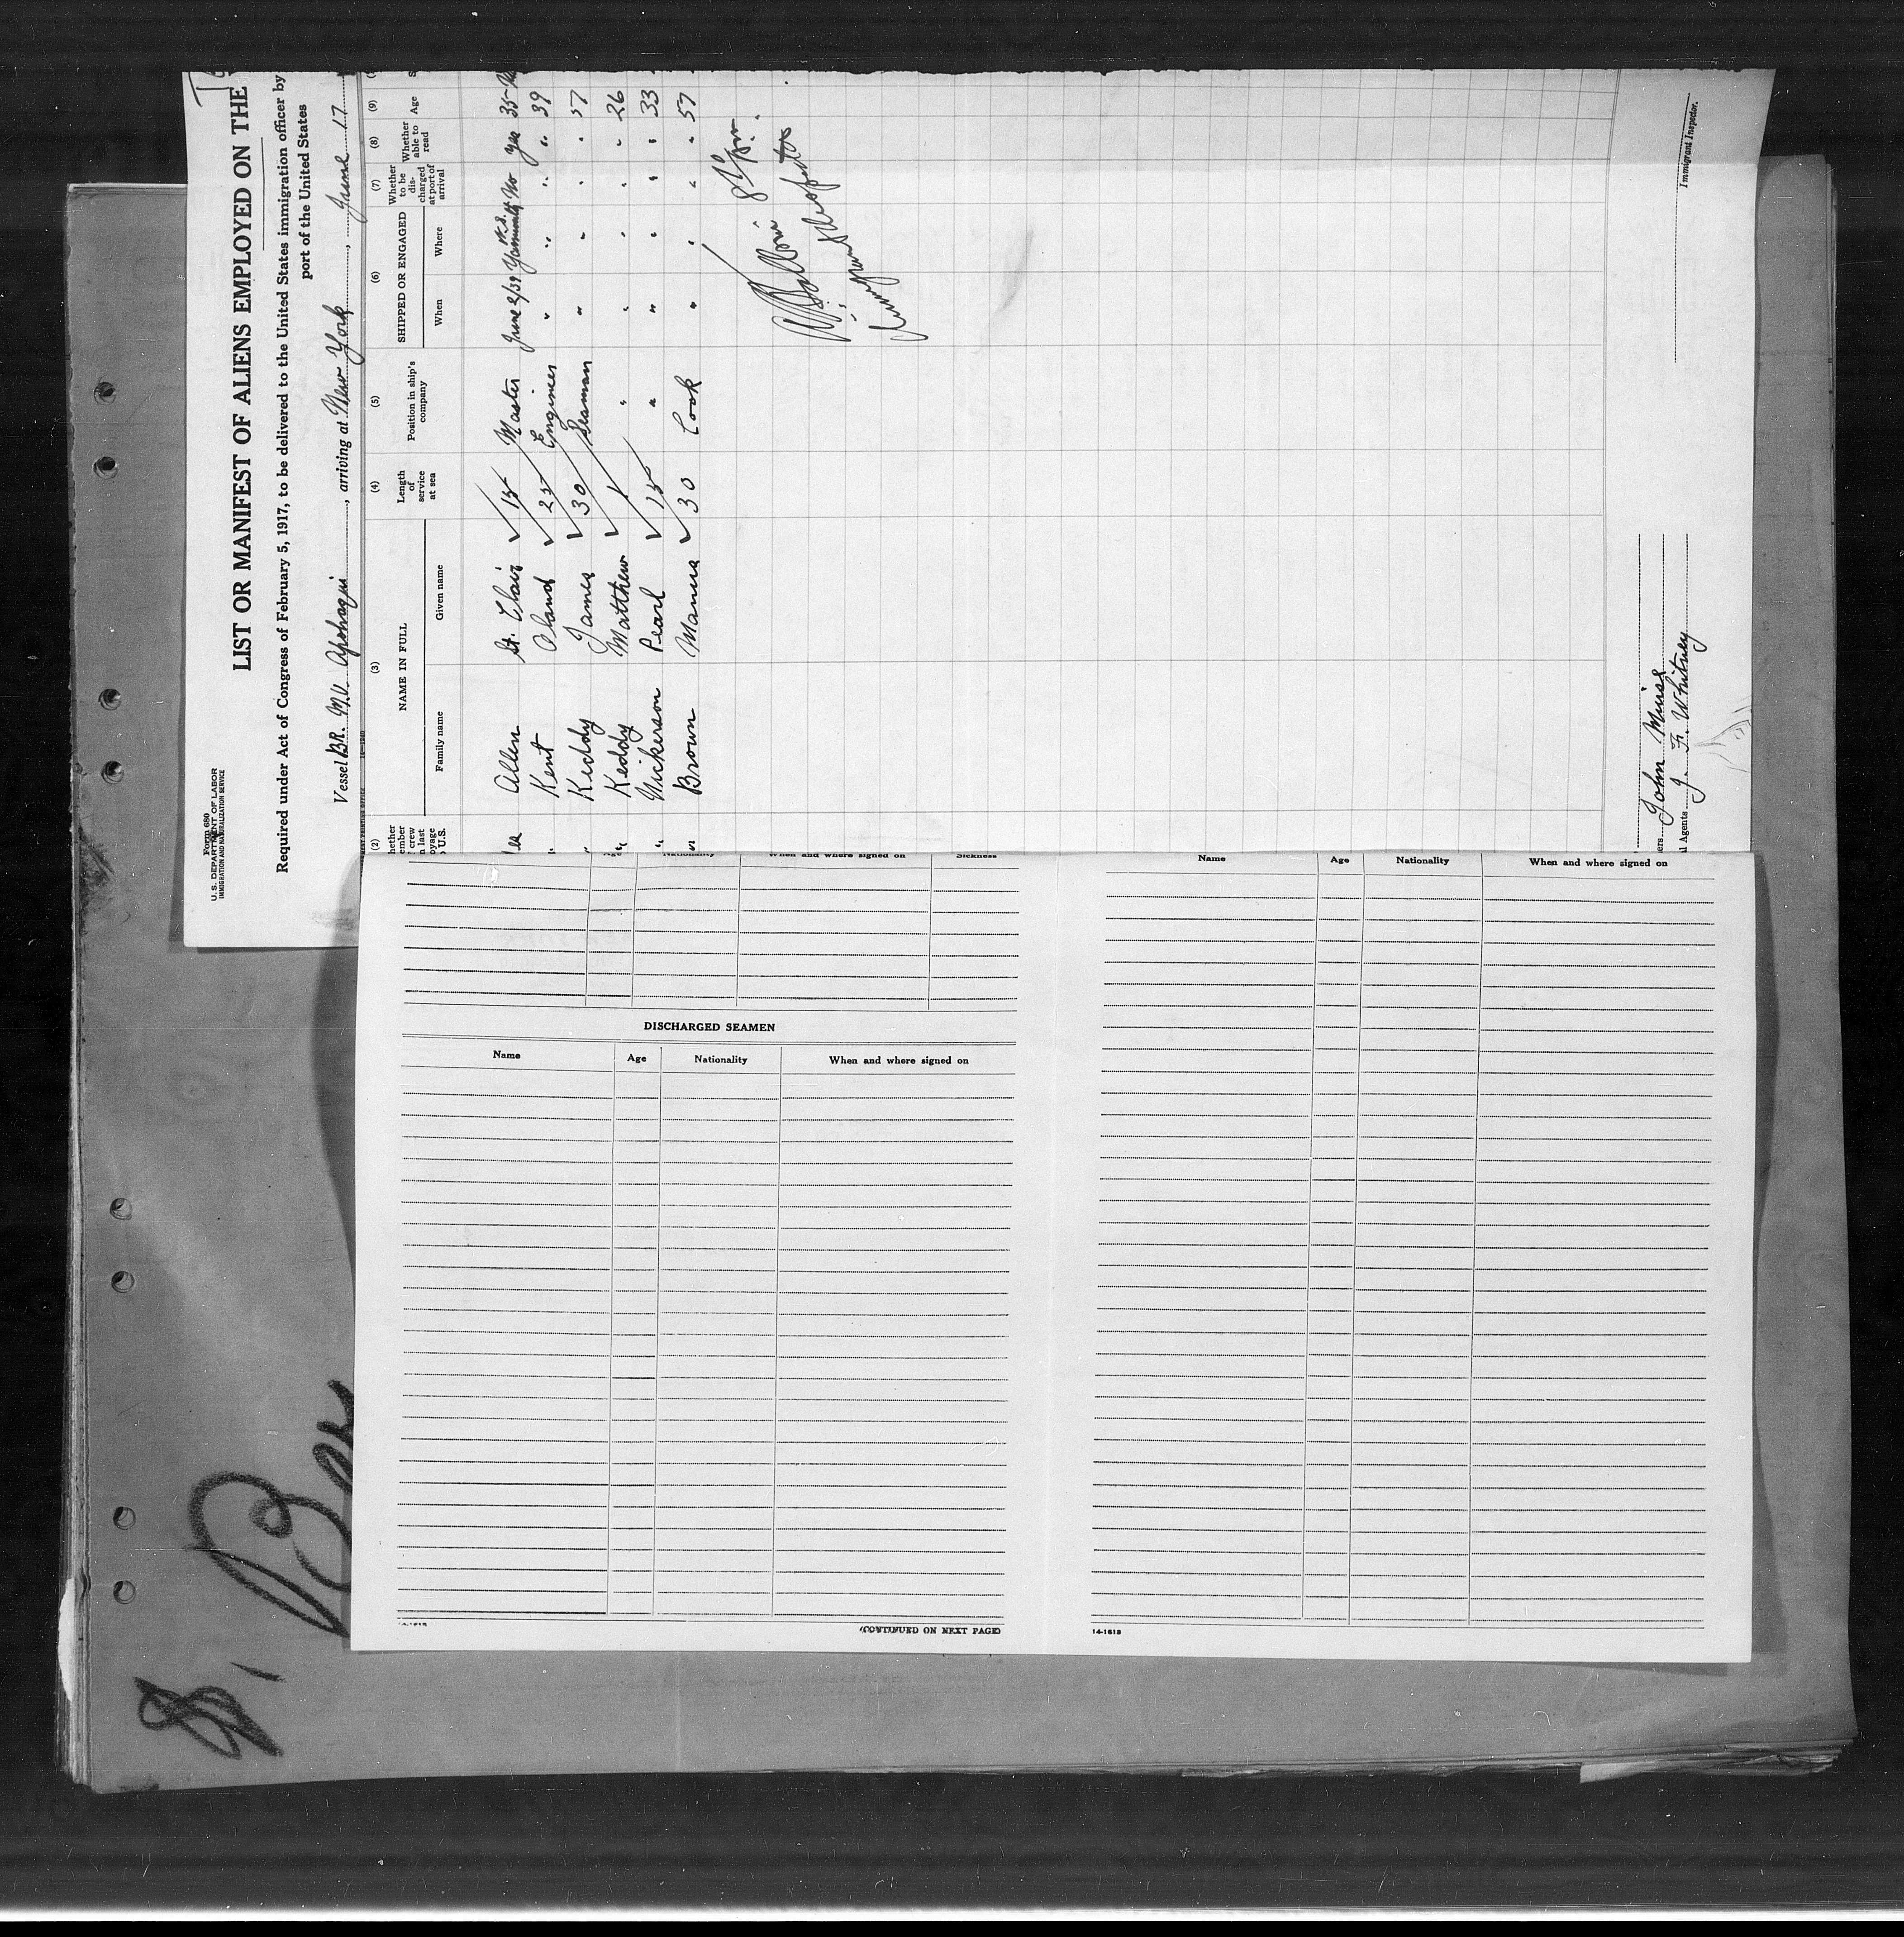 Form 680
U. S. DEPARTMENT OF LABOR
IMMIGRATION AND NATURALIZATION SERVICE
LIST OR MANIFEST OF ALIENS EMPLOYED ON THE
Required under Act of Congress of February 5, 1917, to be delivered to the United States immigration officer by
port of the United States
Vessel BR. M.V. Apohaqui, arriving at New York, June 17
(2) (3) (4) (5) (6) (7) (8) (9)
NAME IN FULL Length of service at sea Position in ship's company SHIPPED OR ENGAGED Whether to be discharged at port of arrival Whether able to read Age
Family name Given name When Where
Allen St. Clair 15 Master June 2/39 Yarmouth N.S. No yes 35
" Kent Oland 25 Engineer " " " " 39
" Keddy James 30 Seaman " " " " 57
" Keddy Matthew 1 " " " " " 26
" Nickerson Pearl 15 " " " " " 33
" Brown Manus 30 Cook " " " " 57
Immigrant Inspector.
John Muise
l Agents J. F. Whitney
Nationality When and where signed on Sickness
DISCHARGED SEAMEN
Name Age Nationality When and where signed on
(CONTINUED ON NEXT PAGE)
Name Age Nationality When and where signed on
14-1613